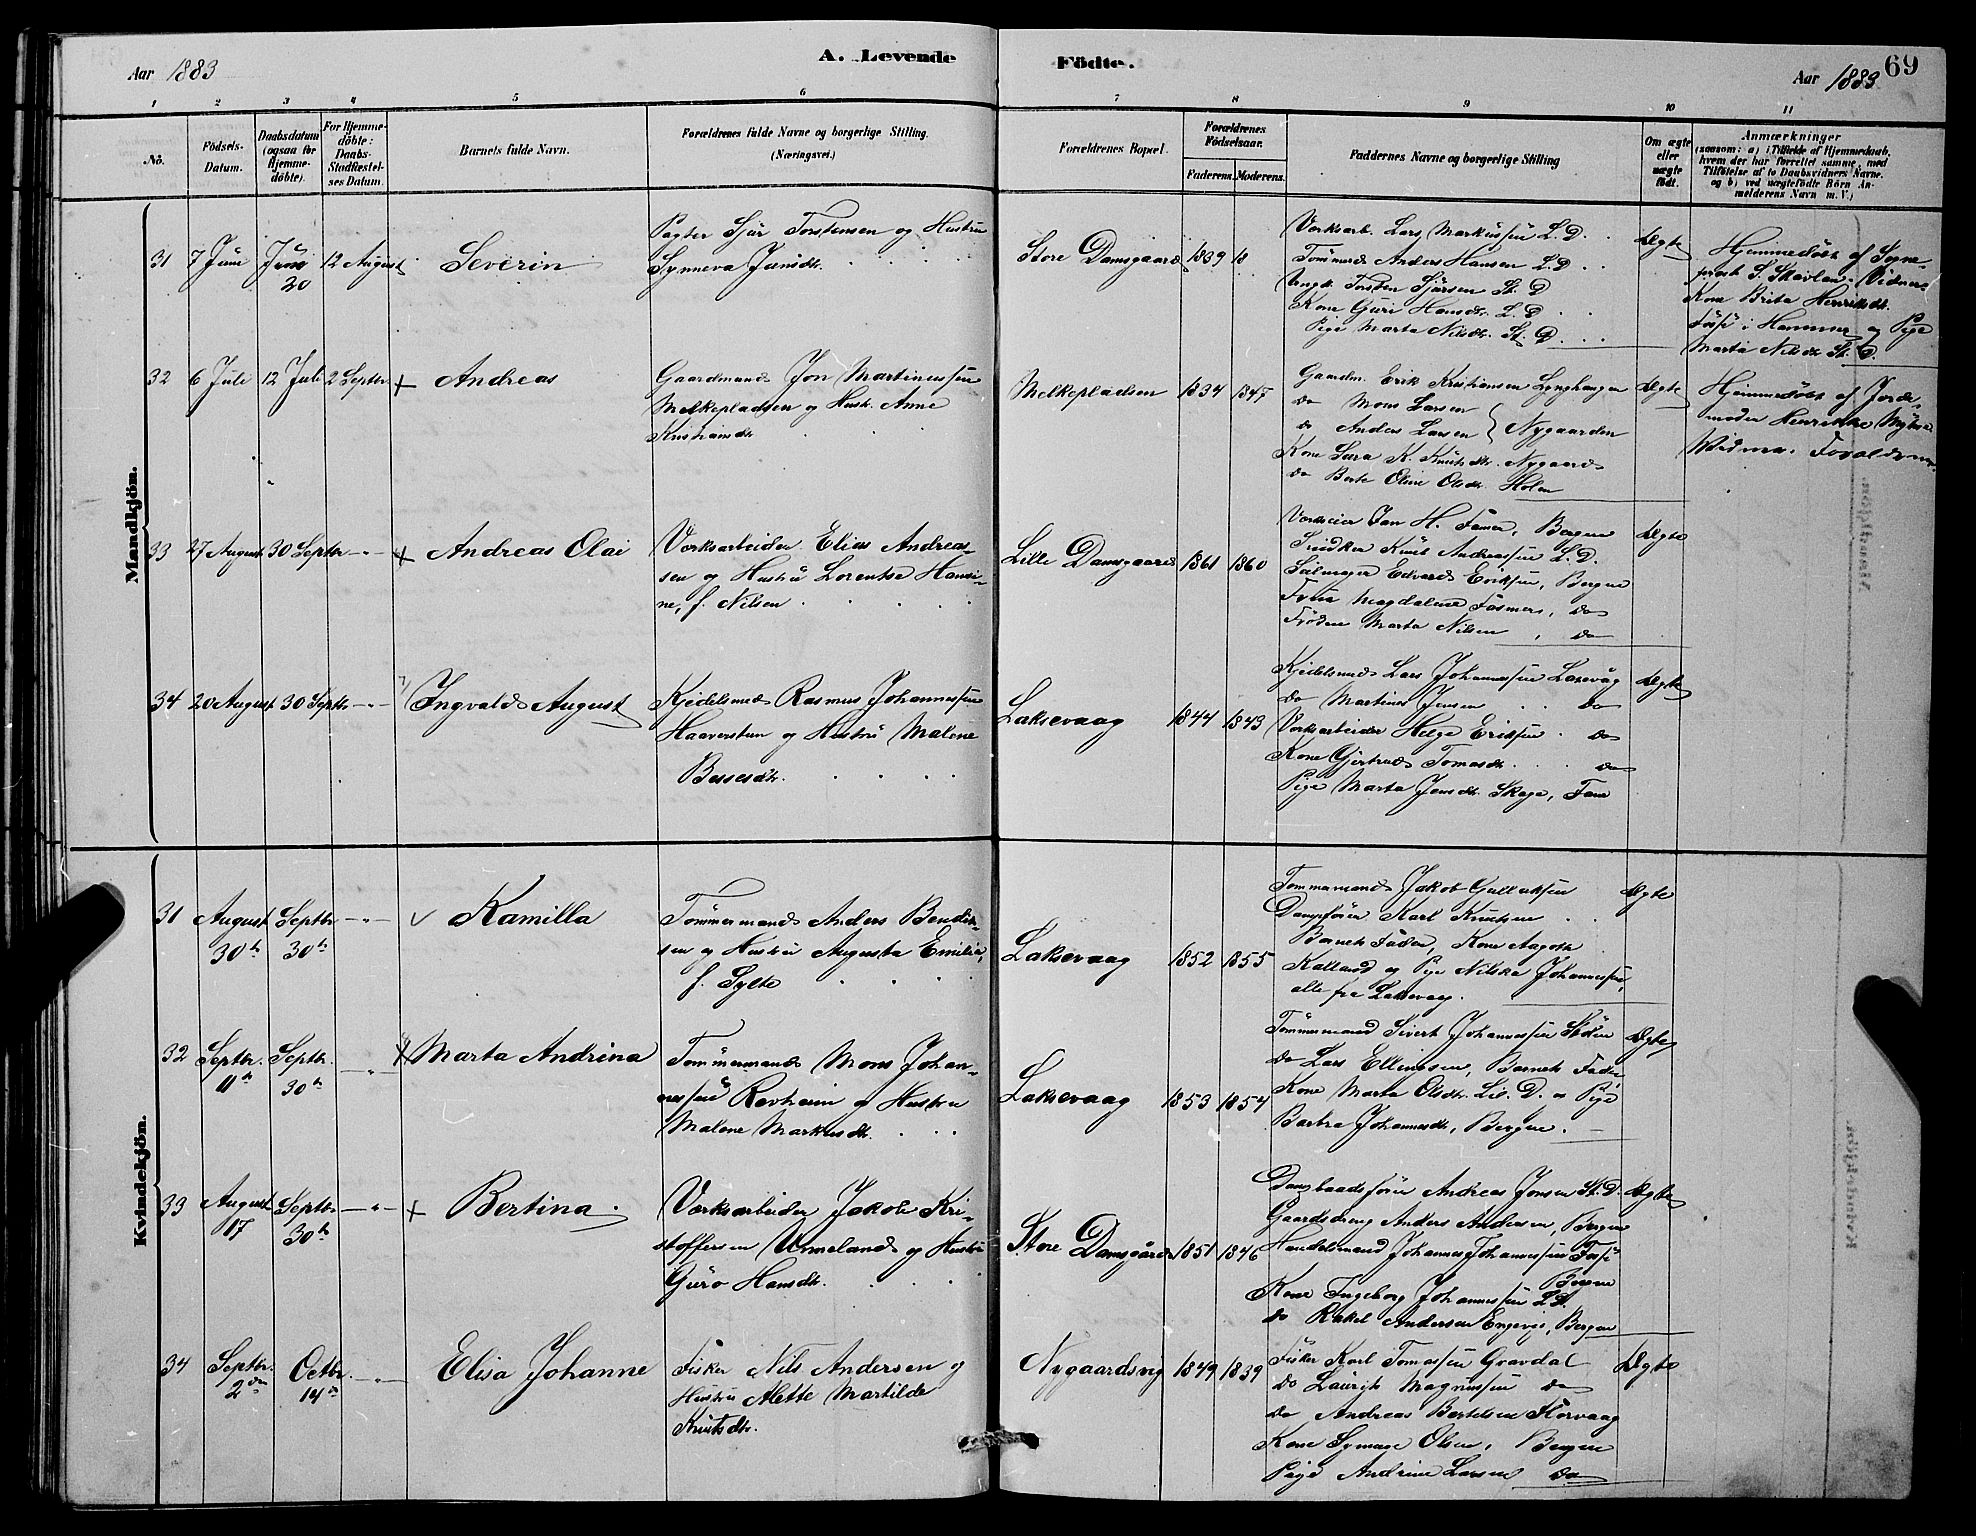 Aar 1883
A. Levende
Födte.
Aar 1883
69
1 2 3 4 5 6 7 8 9 10 11
No.
Födsels-
Datum.
Daabsdatum
(ogsaa for
Hjemme-
döbte).
For Hjemme-
döbte:
Daabs-
Stadfæstel-
ses Datum.
Barnets fulde Navn.
Forældrenes fulde Navne og borgerlige Stilling.
(Næringsvei.)
Forældrenes Bopæl.
Forældrenes
Födselsaar.
Faderens. Moderens.
Faddernes Navne og borgerlige Stilling
Om ægte
eller
uægte
født.
Anmærkninger
(saasom: a) i Tilfælde af Hjemmedaab,
hvem der har forrettet samme, med
Tilföielse af to Daabsvidners Navne.
og b) ved uægtefödte Börn An-
melderens Navn m. V.)
Mandkjön.
31 7 Juni Juni 20 12 August Severin
Pagter Sjur Torstensen og Hustru
Synneva Jensdtr.
Store Damsgaard 1839 18
Værksarb. Lars Markussen L. D.
Tømmermd Anders Hansen L. D.
Ungk. Torsten Sjursen St. D.
Kone Guri Hansdtr. L. D.
Pige Marta Nilsdtr. St. D.
Ægte
Hjemmedöbt af Sogne-
prest S. Skavlan. Vidner
Kone Brita Henriksdtr.
Fosse i Hammer og Pige
Marta Nilsdtr St. D.
32 6 Juli 12 Juli 2 Septbr Andreas
Gaardmand Jon Martinussen
Melkepladsen og Hustr. Anne
Kristiansdtr
Melkepladsen 1834 1845
Gaardm. Erik Kristiansen Lynghaugen
do Mons Larsen
do Anders Larsen } Nygaarden
Kone Sara K. Knutsdtr. Nygaard
do Berte Oline Olsdtr. Holen
Ægte
Hjemmedöbt af Jorde-
moder Henrikke
Vidner. Forældrene.
33 27 August 30 Septbr -"- Andreas Olai
Værksarbeider Elias Andreas-
sen og Hustru Lorentse Hansi-
ne, f. Nilsen
Lille Damsgaard 1861 1860
Værkseier Jan H. Fasmer, Bergen
Snedker Knut Andreassen L. D.
Seilmager Edvard Eriksen, Bergen
Fru Magdalene Fasmer, do
Fröken Marta Nilsen, do
Ægte
34 20 August 30 Septbr -"- Ingvald August
Kjedelsmed Rasmus Johannessen
Haaverstun og Hustru Malene
Bessesdtr.
Laksevaag 1844 1843
Kjedelsmed Lars Johannessen Laksevåg
do Martinus Jensen do
Værksarbeider Helge Eriksen do
Kone Gjertrud Tomasdtr. do
Pige Marta Jensdtr. Skage, Fane
Ægte
Kvindekjön.
31 August 30te Septbr 30te -"- Kamilla
Tømmermand Anders Bendik-
sen og Hustru Augusta Emilie,
f. Sylte
Laksevaag 1852 1855
Tømmermand Jakob Gulluksen
Dampfører Karl Knutsen
Barnets Fader, Kone Aagote
Kalland og Pige Nilska Johannessen,
alle fra Laksevaag.
Ægte
32 Septbr. 11te Septbr. 30te -"- Marta Andrina
Tømmermand Mons Johan-
nessen Ravheim og Hustru
Malene Markusdtr.
Laksevaag 1853 1854
Tømmermand Sivert Johannessen
do Lars Ellingsen, Barnets Fader
Kone Marta Olsdtr. Lil. D. og Pige
Barbra Johannesdtr, Bergen.
Ægte
33 August 17 Septbr 30te -"- Bertina.
Værksarbeider Jakob Kri-
stoffersen Unneland og Hustru
Guro Hansdtr.
Store Damsgaard 1851 1846
Dampbaadsfører Andreas Jensen St. D.
Gaardsdreng Anders Andersen, Bergen
Handelsmand Johannes Johannessen Fosse
Bergen
Kone Ingeborg Johannessen L. D.
do Rakel Andersen Engevej, Bergen
Ægte
34 Septbr. 2den Octbr. 14de -"- Elisa Johanne
Fisker Nils Andersen og
Hustru Alette Martilde
Knutsdtr.
Nygaardsvig 1849 1839
Fisker Karl Tomassen Gravdal
do Laurits Magnussen do
do Andreas Bertelsen Storvaag
Kone Olsen, Bergen
Pige Andrine Larsen do
Ægte